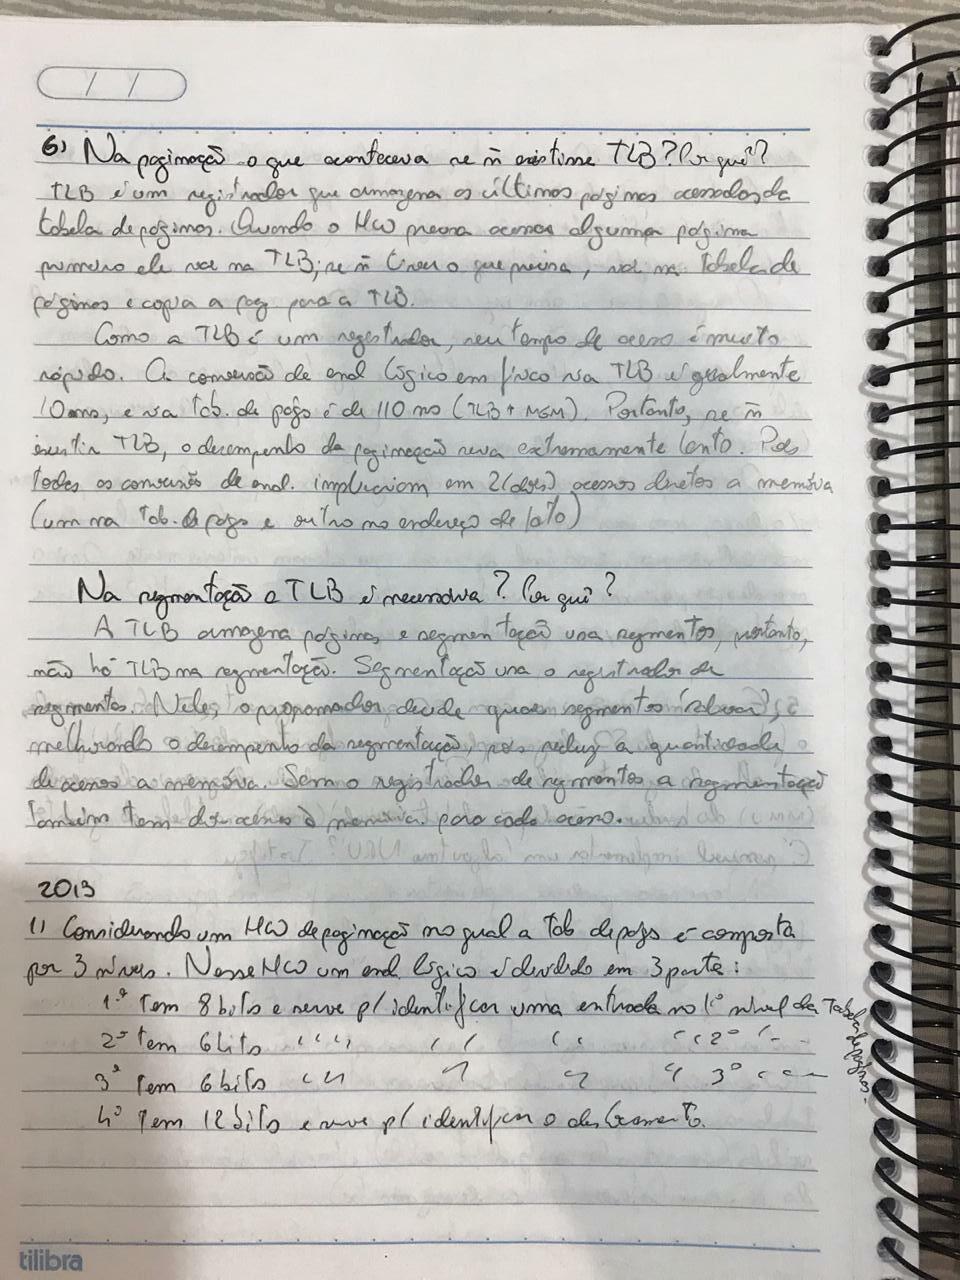 6) Na paginação o que aconteceria se ñ existisse TLB? Por quê?
TLB é um registrador que armazena as últimas páginas acessadas da
tabela de páginas. Quando o HW precisa acessar alguma página
primeiro ele vai na TLB; se ñ tiver o que precisa, vai na Tabela de
páginas e copia a pag para a TLB.
Como a TLB é um registrador, seu tempo de acesso é muito
rápido. A conversão de end lógico em físico via TLB é geralmente
10ns, e via Tab. de pags é de 110 ns (TLB + MEM). Portanto, se ñ
existir TLB, o desempenho da paginação seria extremamente lento. Pois
todas as conversão de end. implicariam em 2 (dois) acessos diretos a memória
(um na Tab. de pags e outro no endereço de fato)
Na segmentação a TLB é necessária? Por quê?
A TLB armazena páginas, e segmentação usa segmentos, portanto,
não há TLB na segmentação. Segmentação usa o registrador de
segmentos. Neles, o programador decide quais segmentos salvar,
melhorando o desempenho da segmentação, pois reduz a quantidade
de acessos a memória. Sem o registrador de segmentos a segmentação
também tem dois acessos à memória para cada acesso.
2013
1) Considerando um HW de paginação no qual a tab de pags é composta
por 3 níveis. Nesse HW um end lógico é dividido em 3 parte:
1ª Tem 8 bits e serve p/ identificar uma entrada no 1º nível da Tabela de páginas.
2ª tem 6 bits " " " " " " 2º " -
3ª Tem 6 bits " " " " " 3º " "
4º Tem 12 bits e serve p/ identificar o deslocamento.
tilibra